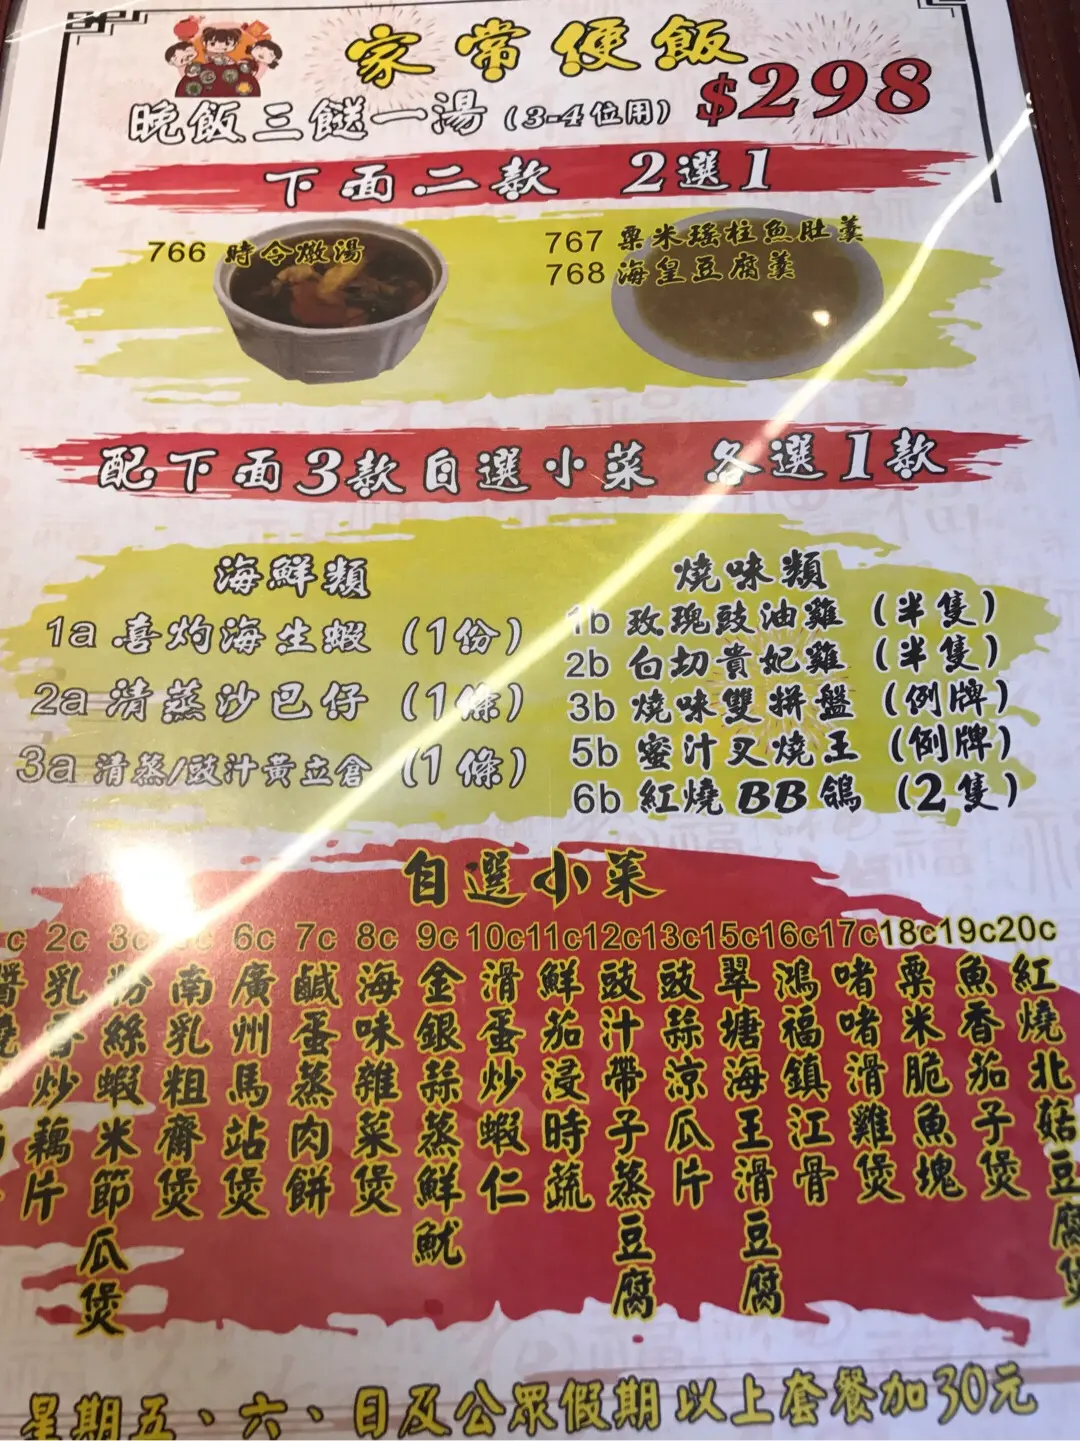 家常便飯
晚飯三餸一湯(3-4位用) $298
下面二款 2選1
766 時令燉湯
767 粟米瑤柱魚肚羹
768 海皇豆腐羹
配下面3款自選小菜 各選1款
海鮮類
1a 喜灼海生蝦 (1份)
2a 清蒸沙巴仔 (1條)
3a 清蒸/豉汁黃立倉 (1條)
燒味類
1b 玫瑰豉油雞 (半隻)
2b 白切貴妃雞 (半隻)
3b 燒味雙拼盤 (例牌)
5b 蜜汁叉燒王 (例牌)
6b 紅燒BB鴿 (2隻)
自選小菜
2c 乳香炒藕片
3c 粉絲蝦米節瓜煲
南乳粗齋煲
6c 廣州馬站煲
7c 鹹蛋蒸肉餅
8c 海味雜菜煲
9c 金銀蒜蒸鮮魷
10c 滑蛋炒蝦仁
11c 鮮茄浸時蔬
12c 豉汁帶子蒸豆腐
13c 豉蒜涼瓜片
15c 翠塘海王滑豆腐
16c 鴻福鎮江骨
17c 啫啫滑雞煲
18c 粟米脆魚塊
19c 魚香茄子煲
20c 紅燒北菇豆腐煲
星期五、六、日及公眾假期以上套餐加30元